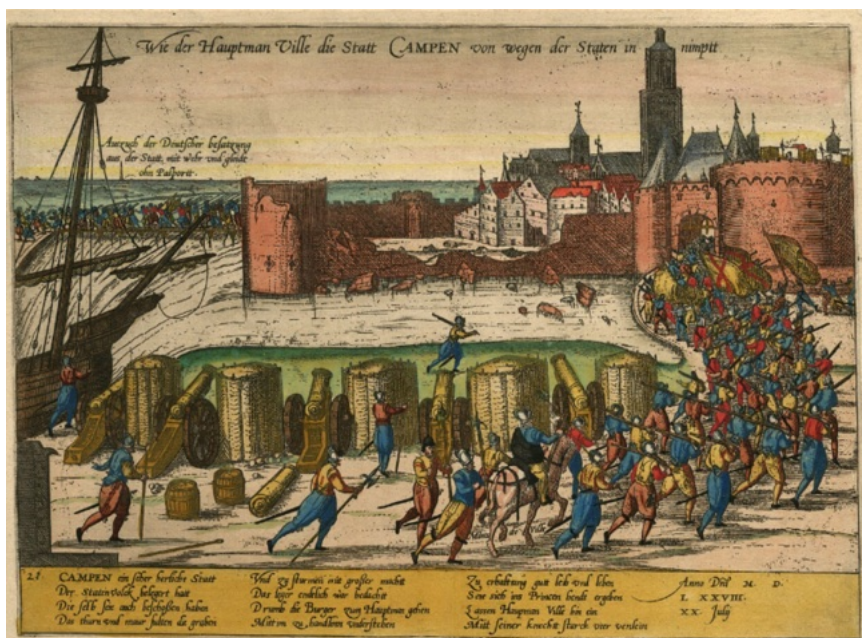 Wie der Hauptman Ville die Statt CAMPEN von wegen der Staten in nimptt
Auszuch der Deutscher besatzung
aus der Statt, mit wehr vnd
ohn Pasporrt.
de Ville
21. CAMPEN ein seher herliche Statt
Der Staten Volck belegert hatt
Die selb sei auch beschossen haben
Das thurn vnd maur falten da graben
Vnd zu sturmen mit großer macht
Das leger endtlich war bedacht
Drumb die Burger zum Hauptman gehen
Mitt im zu handlen vnderstehen
Zu erhaltung gutt leib vnd leben
Seie sich ins Printzen hende ergeben
Lassen Hauptman Ville hin ein
Mitt seiner knecht starck vier venlein
Anno Dñi M. D.
L XXVIII.
XX. July